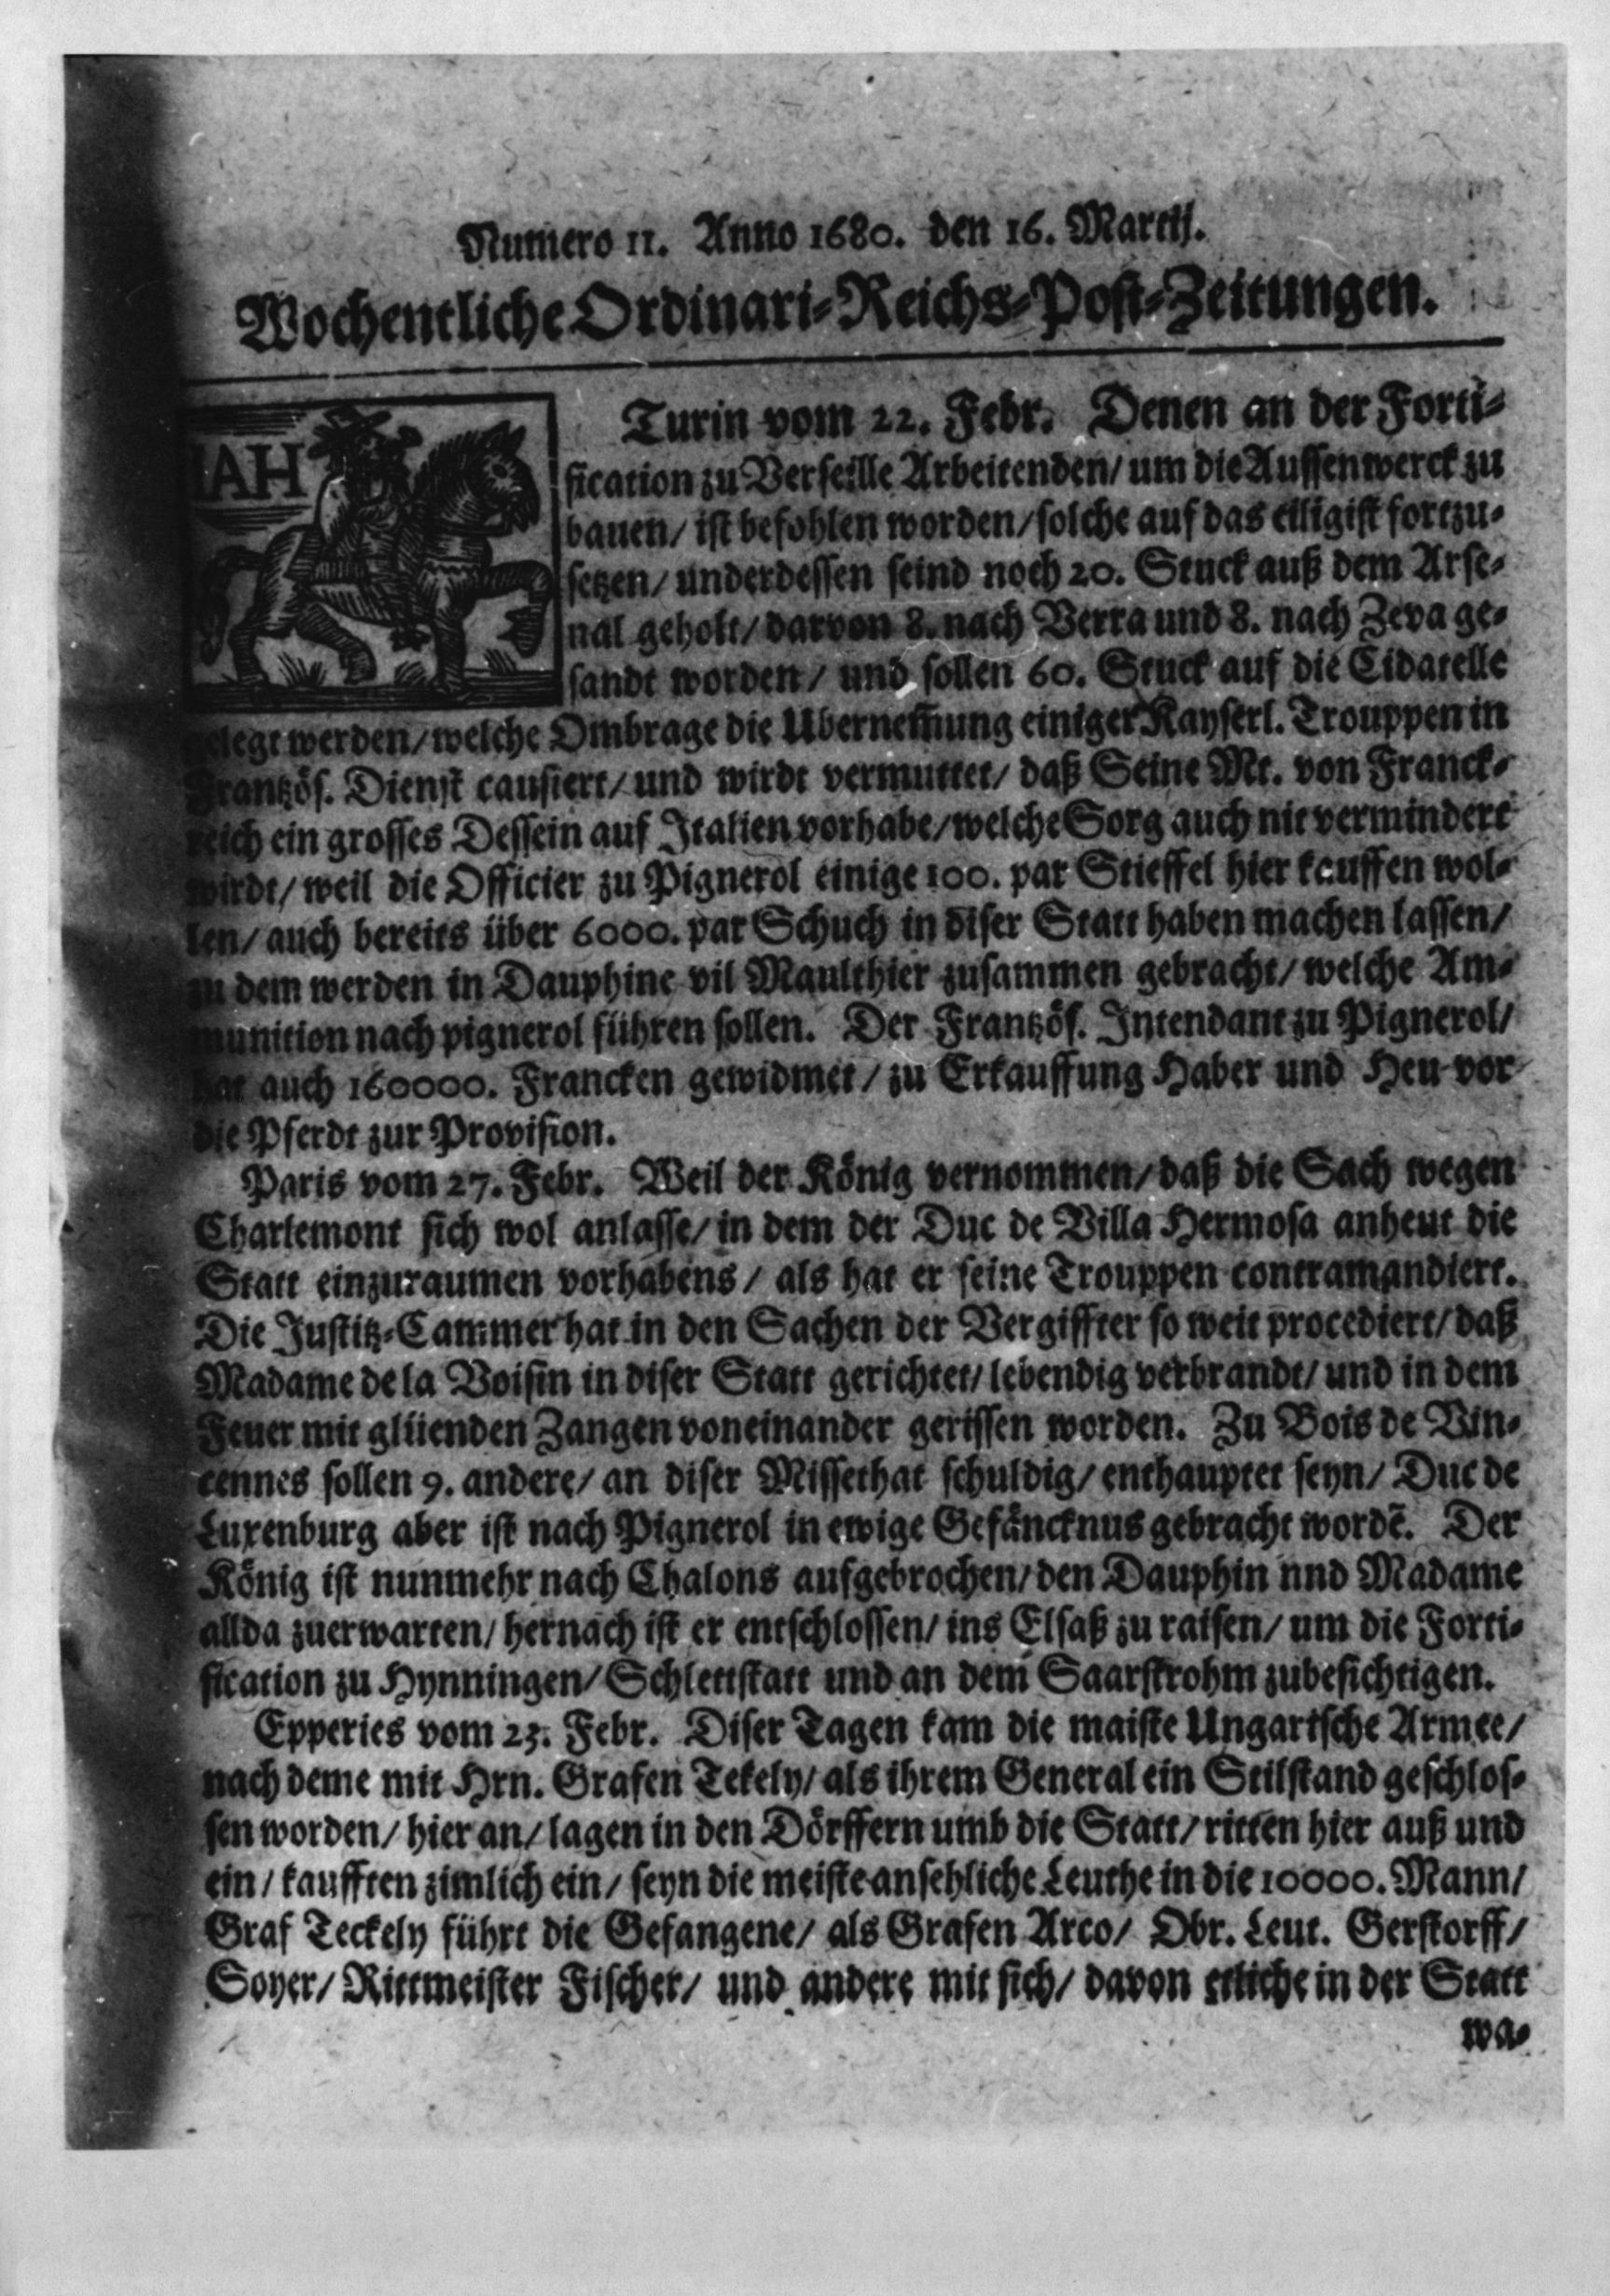 Numero 11. Anno 1680. den 16. Martij.
Wochentliche Ordinari-Reichs-Post-Zeitungen.
IAH
Turin vom 22. Febr. Denen an der Forti-
fication zu Verseille Arbeitenden/ um die Aussenwerck zu
bauen/ ist befohlen worden/ solche auf das eiligist fortzu-
setzen/ underdessen seind noch 20. Stuck auß dem Arse-
nal geholt/ darvon 8. nach Verra und 8. nach Zeva ge-
sandt worden/ und sollen 60. Stuck auf die Cidatelle
gelegt werden/ welche Ombrage die Ubernem̃ung einiger Kayserl. Trouppen in
Frantzös. Dienst causiert/ und wirdt vermuttet/ daß Seine Mt. von Franck-
reich ein grosses Dessein auf Italien vorhabe/ welche Sorg auch nit vermindert
wirdt/ weil die Officier zu Pignerol einige 100. par Stieffel hier kauffen wol-
len/ auch bereits über 6000. par Schuch in diser Statt haben machen lassen/
zu dem werden in Dauphine vil Maulthier zusammen gebracht/ welche Am-
munition nach pignerol führen sollen. Der Frantzös. Intendant zu Pignerol/
hat auch 160000. Francken gewidmet/ zu Erkauffung Haber und Heu vor
die Pferdt zur Provision.
Paris vom 27. Febr. Weil der König vernommen/ daß die Sach wegen
Charlemont sich wol anlasse/ in dem der Duc de Villa Hermosa anheut die
Statt einzuraumen vorhabens/ als hat er seine Trouppen contramandiert.
Die Justitz-Cammer hat in den Sachen der Vergiffter so weit procediert/ daß
Madame de la Voisin in diser Statt gerichtet/ lebendig verbrandt/ und in dem
Feuer mit glüenden Zangen voneinander gerissen worden. Zu Bois de Vin-
cennes sollen 9. andere/ an diser Missethat schuldig/ enthauptet seyn/ Duc de
Luxenburg aber ist nach Pignerol in ewige Gefäncknus gebracht wordẽ. Der
König ist nunmehr nach Chalons aufgebrochen/ den Dauphin nnd Madame
allda zuerwarten/ hernach ist er entschlossen/ ins Elsaß zu raisen/ um die Forti-
fication zu Hynningen/ Schlettstatt und an dem Saarstrohm zubesichtigen.
Epperies vom 23. Febr. Diser Tagen kam die maiste Ungarische Armee/
nach deme mit Hrn. Grafen Tekely/ als ihrem General ein Stilstand geschlos-
sen worden/ hier an/ lagen in den Dörffern umb die Statt/ ritten hier auß und
ein/ kaufften zimlich ein/ seyn die meiste ansehliche Leuthe in die 10000. Mann/
Graf Teckely führt die Gefangene/ als Grafen Arco/ Obr. Leut. Gerstorff/
Soyer/ Rittmeister Fischer/ und andere mit sich/ davon etliche in der Statt
wa-